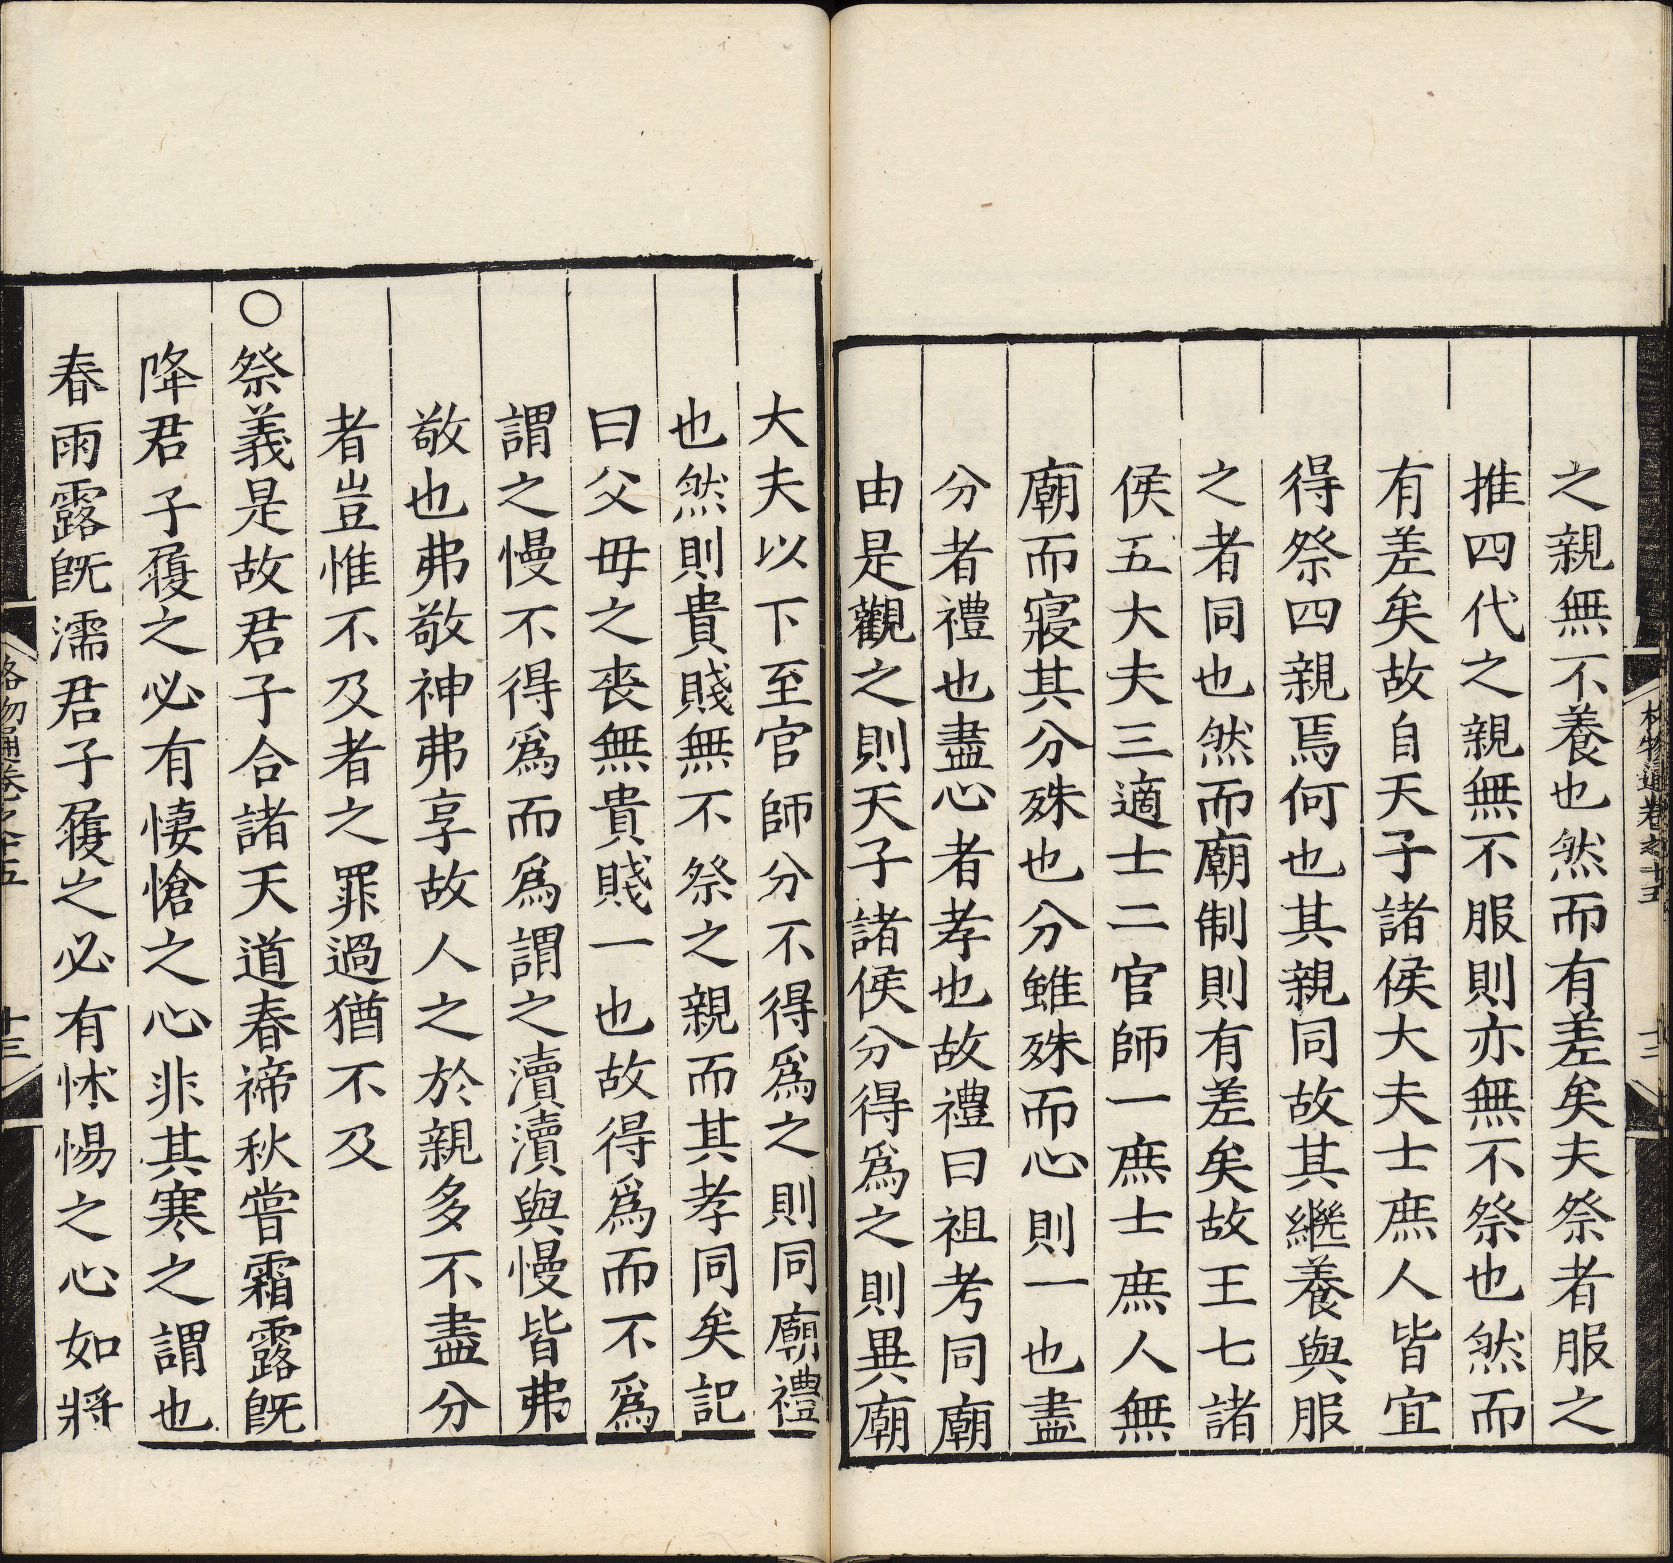 之親無不養也然而有差矣夫祭者服之
推四代之親無不服則亦無不祭也然而
有差矣故自天子諸侯大夫士庶人皆宜
得祭四親焉何也其親同故其繼養與服
之者同也然而廟制則有差矣故王七諸
侯五大夫三適士二官師一庶士庶人無
廟而寢其分殊也分雖殊而心則一也盡
分者禮也盡心者孝也故禮曰祖考同廟
由是觀之則天子諸侯分得爲之則異廟
格物通卷之五十五
十二
大夫以下至官師分不得爲之則同廟禮
也然則貴賤無不祭之親而其孝同矣記
曰父母之喪無貴賤一也故得爲而不爲
謂之慢不得爲而爲謂之瀆瀆與慢皆弗
敬也弗敬神弗享故人之於親多不盡分
者豈惟不及者之罪過猶不及
○祭義是故君子合諸天道春禘秋嘗霜露旣
降君子履之必有悽愴之心非其寒之謂也
春雨露旣濡君子履之必有怵惕之心如將
十三